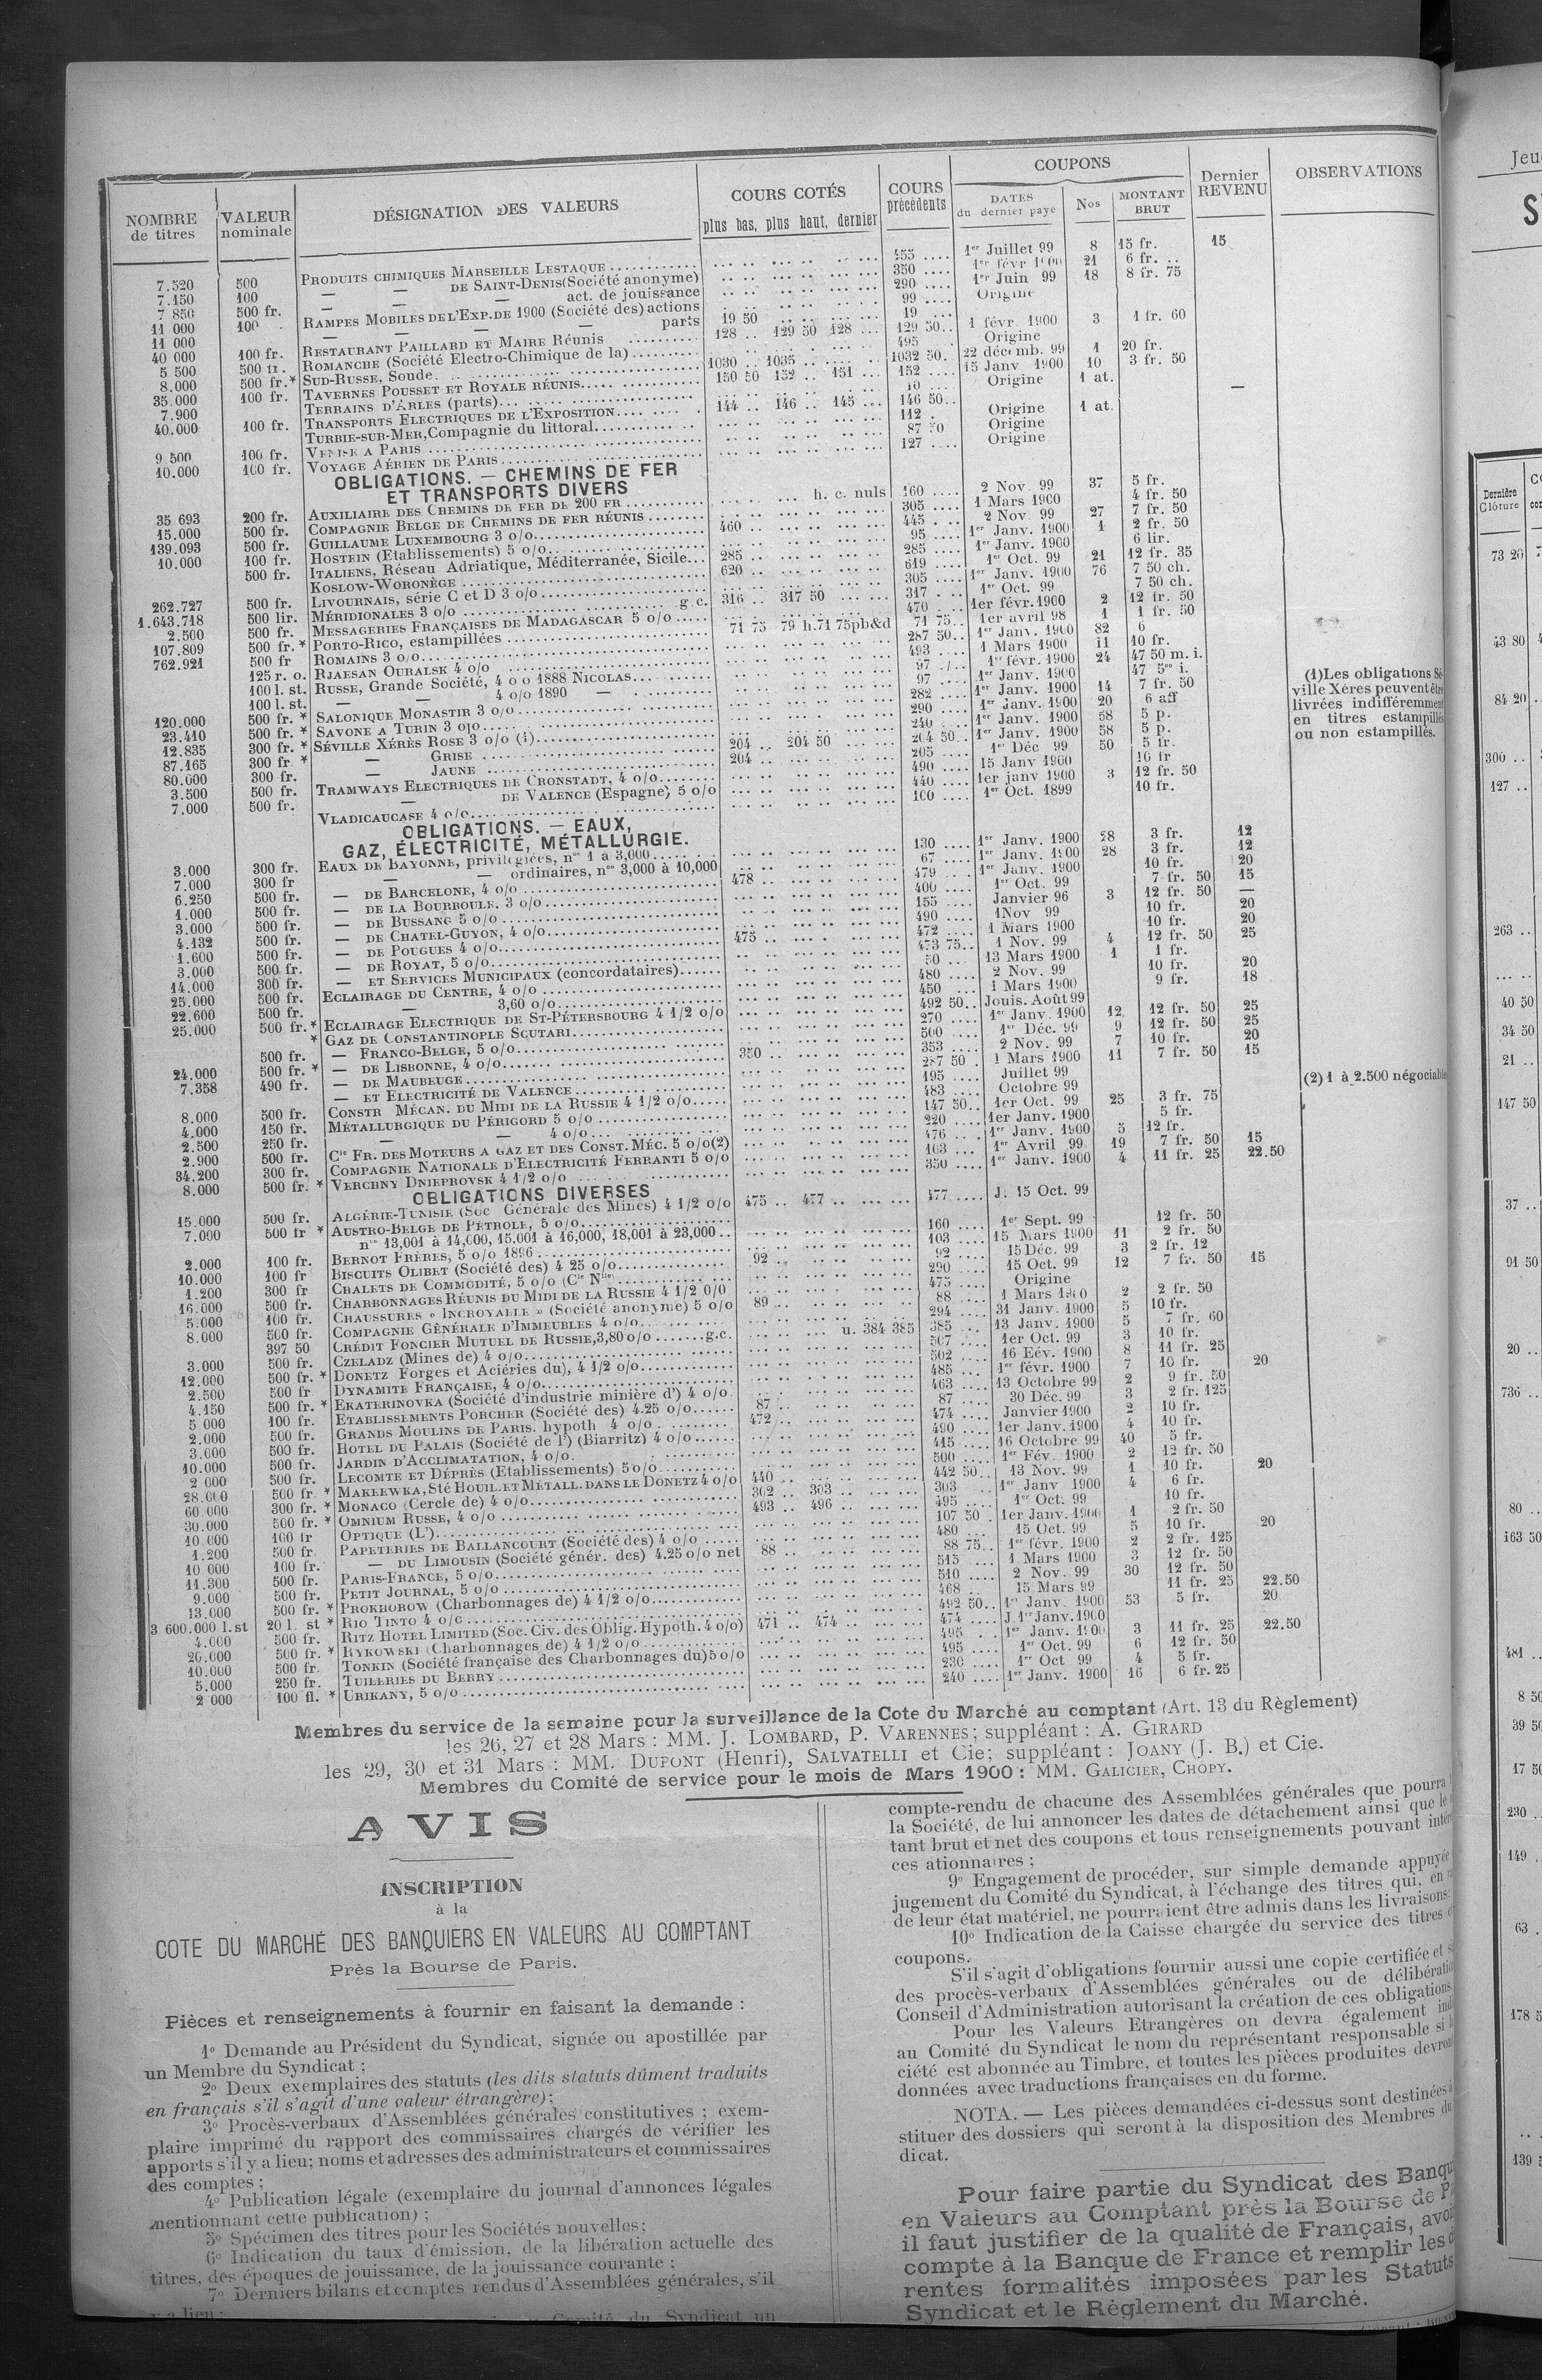 NOMBRE de titres | VALEUR nominale | DÉSIGNATION DES VALEURS | COURS COTÉS plus bas, plus haut, dernier | COURS précédents | COUPONS DATES du dernier payé | Nos | MONTANT BRUT | Dernier REVENU | OBSERVATIONS
7.520 500 PRODUITS CHIMIQUES MARSEILLE LESTAQUE 455 1er Juillet 99 8 15 fr. 15
7.150 100 — — DE SAINT-DENIS (Société anonyme) 350 1er févr 1900 21 6 fr.
7 850 500 fr. — — — act. de jouissance 290 1er Juin 99 18 8 fr. 75
11 000 100 RAMPES MOBILES DE L'EXP. DE 1900 (Société des) actions 99 Origine
11 000 — — — parts 19 50 19
40 000 100 fr. RESTAURANT PAILLARD ET MAIRE Réunis 128 129 50 128 129 50 1 févr. 1900 3 1 fr. 60
5 500 500 fr. ROMANCHE (Société Electro-Chimique de la) 495 Origine
8.000 500 fr.* SUD-RUSSE, Soude 1030 1035 1032 50 22 décemb. 99 1 20 fr.
35.000 100 fr. TAVERNES POUSSET ET ROYALE RÉUNIS 150 50 152 151 152 15 Janv 1900 10 3 fr. 50
7.900 TERRAINS D'ARLES (parts) 10 Origine 1 at.
40.000 100 fr. TRANSPORTS ELECTRIQUES DE L'EXPOSITION 144 146 145 146 50 —
TURBIE-SUR-MER, Compagnie du littoral 112 Origine 1 at.
9 500 100 fr. VENISE A PARIS 87 50 Origine
10.000 100 fr. VOYAGE AÉRIEN DE PARIS 127 Origine
OBLIGATIONS. — CHEMINS DE FER
ET TRANSPORTS DIVERS
35 693 200 fr. AUXILIAIRE DES CHEMINS DE FER DE 200 FR h. c. nuls 160 2 Nov. 99 37 5 fr.
15.000 500 fr. COMPAGNIE BELGE DE CHEMINS DE FER RÉUNIS 305 1 Mars 1900 4 fr. 50
139.093 500 fr. GUILLAUME LUXEMBOURG 3 o/o 460 445 2 Nov. 99 27 7 fr. 50
10.000 100 fr. HOSTEIN (Etablissements) 5 o/o 95 1er Janv. 1900 1 2 fr. 50
500 fr. ITALIENS, Réseau Adriatique, Méditerranée, Sicile 285 285 1er Janv. 1900 6 lir.
KOSLOW-WORONÈGE 620 619 1er Oct. 99 21 12 fr. 35
262.727 500 fr. LIVOURNAIS, série C et D 3 o/o 305 1er Janv. 1900 76 7 50 ch.
1.643.718 500 lir. MÉRIDIONALES 3 o/o g c. 316 317 50 317 1er Oct. 99 7 50 ch.
2.500 500 fr. MESSAGERIES FRANÇAISES DE MADAGASCAR 5 o/o 470 1er févr. 1900 2 12 fr. 50
107.809 500 fr.* PORTO-RICO, estampillées 71 75 79 h. 71 75 pb&d 71 75 1er avril 98 1 1 fr. 50
762.921 500 fr ROMAINS 3 o/o 287 50 1er Janv. 1900 82 6
125 r. o. RJAESAN OURALSK 4 o/o 493 1 Mars 1900 11 10 fr.
100 l. st. RUSSE, Grande Société, 4 o o 1888 NICOLAS 97 1er févr. 1900 24 47 50 m. i.
100 l. st. — — 4 o/o 1890 — 97 1er Janv. 1900 47 5 i.
120.000 500 fr. * SALONIQUE MONASTIR 3 o/o 282 1er Janv. 1900 14 7 fr. 50
23.410 500 fr. * SAVONE A TURIN 3 o/o 290 1er Janv. 1900 20 6 aff
12.835 300 fr. * SÉVILLE XÉRÈS ROSE 3 o/o (1) 204 204 50 240 1er Janv. 1900 58 5 p.
87.165 300 fr. * — GRISE 204 204 50 1er Janv. 1900 58 5 p.
80.000 300 fr. — JAUNE 205 1er Déc 99 50 5 fr.
3.500 500 fr. TRAMWAYS ELECTRIQUES DE CRONSTADT, 4 o/o 490 15 Janv 1900 10 fr
7.000 500 fr. — DE VALENCE (Espagne) 5 o/o 440 1er janv 1900 3 12 fr. 50
VLADICAUCASE 4 o/o 100 1er Oct. 1899 10 fr.
(1) Les obligations Sé-
ville Xéres peuvent être
livrées indifféremment
en titres estampillés
ou non estampillés.
OBLIGATIONS. — EAUX,
GAZ, ÉLECTRICITÉ, MÉTALLURGIE.
3.000 300 fr. EAUX DE BAYONNE, privilégiées, nos 1 à 3,000 130 1er Janv. 1900 28 3 fr. 12
7.000 300 fr — — ordinaires, nos 3,000 à 10,000 67 1er Janv. 1900 28 3 fr. 12
6.250 500 fr. — DE BARCELONE, 4 o/o 478 479 1er Janv. 1900 10 fr. 20
1.000 500 fr. — DE LA BOURBOULE, 3 o/o 400 1er Oct. 99 7 fr. 50 15
3.000 500 fr. — DE BUSSANG 5 o/o 155 Janvier 96 3 12 fr. 50 —
4.132 500 fr. — DE CHATEL-GUYON, 4 o/o 490 1 Nov 99 10 fr. 20
1.600 500 fr. — DE POUGUES 4 o/o 475 472 1 Mars 1900 10 fr. 20
3.000 500 fr. — DE ROYAT, 5 o/o 473 75 1 Nov. 99 4 12 fr. 50 25
14.000 300 fr. — ET SERVICES MUNICIPAUX (concordataires) 50 13 Mars 1900 1 1 fr.
25.000 500 fr. ECLAIRAGE DU CENTRE, 4 o/o 480 2 Nov. 99 10 fr. 20
22.600 500 fr. — 3,60 o/o 450 1 Mars 1900 9 fr. 18
25.000 500 fr.* ECLAIRAGE ELECTRIQUE DE ST-PÉTERSBOURG 4 1/2 o/o 492 50 Jouis. Août 99
* GAZ DE CONSTANTINOPLE SCUTARI 270 1er Janv. 1900 12 12 fr. 50 25
500 fr. — FRANCO-BELGE, 5 o/o 500 1er Déc. 99 9 12 fr. 50 25
24.000 500 fr. * — DE LISBONNE, 4 o/o 350 353 2 Nov. 99 7 10 fr. 20
7.358 490 fr. — DE MAUBEUGE 287 50 1 Mars 1900 11 7 fr. 50 15
— ET ELECTRICITÉ DE VALENCE 195 Juillet 99
8.000 500 fr. CONSTR MÉCAN. DU MIDI DE LA RUSSIE 4 1/2 o/o 483 Octobre 99
4.000 150 fr. MÉTALLURGIQUE DU PÉRIGORD 5 o/o 147 50 1er Oct. 99 25 3 fr. 75
2.500 250 fr. — — 4 o/o 220 1er Janv. 1900 5 fr.
2.900 500 fr. Cie FR. DES MOTEURS A GAZ ET DES CONST. MÉC. 5 o/o (2) 476 1er Janv. 1900 5 12 fr.
34.200 300 fr. COMPAGNIE NATIONALE D'ELECTRICITÉ FERRANTI 5 o/o 103 1er Avril 99 19 7 fr. 50 15
8.000 500 fr. * VERCHNY DNIEPROVSK 4 1/2 o/o 350 1er Janv. 1900 4 11 fr. 25 22.50
(2) 1 à 2.500 négociables
OBLIGATIONS DIVERSES
15.000 500 fr. ALGÉRIE-TUNISIE (Soc Générale des Mines) 4 1/2 o/o 475 477 477 J. 15 Oct. 99
7.000 500 fr * AUSTRO-BELGE DE PÉTROLE, 5 o/o 160 1er Sept. 99 12 fr. 50
nos 13,001 à 14,000, 15,001 à 16,000, 18,001 à 23,000 103 15 Mars 1900 11 2 fr. 50
2.000 100 fr. BERNOT FRÈRES, 5 o/o 1896 92 92 15 Déc. 99 3 2 fr. 12
10.000 100 fr BISCUITS OLIBET (Société des) 4 25 o/o 290 15 Oct. 99 12 7 fr. 50 15
1.200 300 fr CHALETS DE COMMODITÉ, 5 o/o (Cie Nlle) 475 Origine
16.000 500 fr. CHARBONNAGES RÉUNIS DU MIDI DE LA RUSSIE 4 1/2 o/o 89 88 1 Mars 1900 2 2 fr. 50
5.000 100 fr. CHAUSSURES « INCROYABLE » (Société anonyme) 5 o/o 294 31 Janv. 1900 5 10 fr.
8.000 500 fr. COMPAGNIE GÉNÉRALE D'IMMEUBLES 4 o/o u. 384 385 385 13 Janv. 1900 5 7 fr. 60
397 50 CRÉDIT FONCIER MUTUEL DE RUSSIE, 3,80 o/o g.c. 507 1er Oct. 99 3 10 fr.
3.000 500 fr. CZELADZ (Mines de) 4 o/o 502 16 Eév. 1900 8 11 fr. 25
12.000 500 fr. * DONETZ Forges et Aciéries du), 4 1/2 o/o 485 1er févr. 1900 7 10 fr. 20
2.500 500 fr DYNAMITE FRANÇAISE, 4 o/o 463 13 Octobre 99 2 9 fr. 50
4.150 500 fr. * EKATERINOVKA (Société d'industrie minière d') 4 o/o 87 87 30 Déc. 99 3 2 fr. 125
5 000 100 fr. ETABLISSEMENTS PORCHER (Société des) 4.25 o/o 472 474 Janvier 1900 2 10 fr.
2.000 500 fr. GRANDS MOULINS DE PARIS. hypoth 4 o/o 490 1er Janv. 1900 4 10 fr.
3.000 500 fr. HOTEL DU PALAIS (Société de l') (Biarritz) 4 o/o 415 16 Octobre 99 40 5 fr.
10.000 500 fr. JARDIN D'ACCLIMATATION, 4 o/o 500 1er Fév. 1900 2 12 fr. 50
2 000 500 fr. LECOMTE ET DÉPRÈS (Etablissements) 5 o/o 440 442 50 13 Nov. 99 1 10 fr. 20
28.000 500 fr. * MAKEEWKA, Sté HOUIL. ET MÉTALL. DANS LE DONETZ 4 o/o 302 303 303 1er Janv 1900 4 6 fr.
60.000 300 fr. * MONACO (Cercle de) 4 o/o 493 496 495 1er Oct. 99 10 fr.
30.000 500 fr. * OMNIUM RUSSE, 4 o/o 107 50 1er Janv. 1900 1 2 fr. 50
10.000 100 fr OPTIQUE (L') 480 15 Oct. 99 5 10 fr. 20
1.200 500 fr. PAPETERIES DE BALLANCOURT (Société des) 4 o/o 88 88 75 1er févr. 1900 2 2 fr. 125
10 000 100 fr. — DU LIMOUSIN (Société génér. des) 4.25 o/o net 515 1 Mars 1900 3 12 fr. 50
11.300 500 fr. PARIS-FRANCE, 5 o/o 510 2 Nov. 99 30 12 fr. 50
9.000 500 fr. PETIT JOURNAL, 5 o/o 468 15 Mars 99 11 fr. 25 22.50
13.000 500 fr. * PROKHOROW (Charbonnages de) 4 1/2 o/o 492 50 1er Janv. 1900 53 5 fr. 20
3 600.000 l.st 20 l. st * RIO TINTO 4 o/o 471 474 474 J. 1er Janv. 1900
4.000 500 fr. RITZ HOTEL LIMITED (Soc. Civ. des Oblig. Hypoth. 4 o/o) 495 1er Janv. 1900 3 11 fr. 25 22.50
20.000 500 fr. * RYKOWSKI (Charbonnages de) 4 1/2 o/o 495 1er Oct. 99 6 12 fr. 50
10.000 500 fr. TONKIN (Société française des Charbonnages du) 5 o/o 230 1er Oct 99 4 5 fr.
5.000 250 fr. TUILERIES DU BERRY 240 1er Janv. 1900 16 6 fr. 25
2 000 100 fl. * URIKANY, 5 o/o
Membres du service de la semaine pour la surveillance de la Cote du Marché au comptant (Art. 13 du Règlement)
les 26, 27 et 28 Mars : MM. J. LOMBARD, P. VARENNES; suppléant : A. GIRARD
les 29, 30 et 31 Mars : MM. DUPONT (Henri), SALVATELLI et Cie; suppléant : JOANY (J. B.) et Cie.
Membres du Comité de service pour le mois de Mars 1900 : MM. GALICIER, CHOPY.
AVIS
INSCRIPTION
à la
COTE DU MARCHÉ DES BANQUIERS EN VALEURS AU COMPTANT
Près la Bourse de Paris.
Pièces et renseignements à fournir en faisant la demande :
1o Demande au Président du Syndicat, signée ou apostillée par
un Membre du Syndicat ;
2o Deux exemplaires des statuts (les dits statuts dûment traduits
en français s'il s'agit d'une valeur étrangère);
3o Procès-verbaux d'Assemblées générales constitutives ; exem-
plaire imprimé du rapport des commissaires chargés de vérifier les
apports s'il y a lieu; noms et adresses des administrateurs et commissaires
des comptes ;
4o Publication légale (exemplaire du journal d'annonces légales
mentionnant cette publication) ;
5o Spécimen des titres pour les Sociétés nouvelles;
6o Indication du taux d'émission, de la libération actuelle des
titres, des époques de jouissance, de la jouissance courante ;
7o Derniers bilans et comptes rendus d'Assemblées générales, s'il
y a lieu ;
Comité du Syndicat un
compte-rendu de chacune des Assemblées générales que pourra
la Société, de lui annoncer les dates de détachement ainsi que le
tant brut et net des coupons et tous renseignements pouvant
ces ationnaires ;
9o Engagement de procéder, sur simple demande appuyée
jugement du Comité du Syndicat, à l'échange des titres qui, en
de leur état matériel, ne pourraient être admis dans les livraisons
10o Indication de la Caisse chargée du service des titres
coupons.
S'il s'agit d'obligations fournir aussi une copie certifiée et
des procès-verbaux d'Assemblées générales ou de
Conseil d'Administration autorisant la création de ces obligations
Pour les Valeurs Etrangères on devra également
au Comité du Syndicat le nom du représentant responsable si
ciété est abonnée au Timbre, et toutes les pièces produites
données avec traductions françaises en du forme.
NOTA. — Les pièces demandées ci-dessus sont destinées
stituer des dossiers qui seront à la disposition des Membres du
dicat.
Pour faire partie du Syndicat des
en Valeurs au Comptant près la Bourse de
il faut justifier de la qualité de Français,
compte à la Banque de France et remplir les
rentes formalités imposées par les Statuts
Syndicat et le Règlement du Marché.
Jeu
Dernière Clôture
73 20
43 80
84 20
300
127
263
40 50
34 50
21
147 50
37
91 50
20
736
80
163 50
481
8 50
39 50
17 50
230
149
63
178 5
139